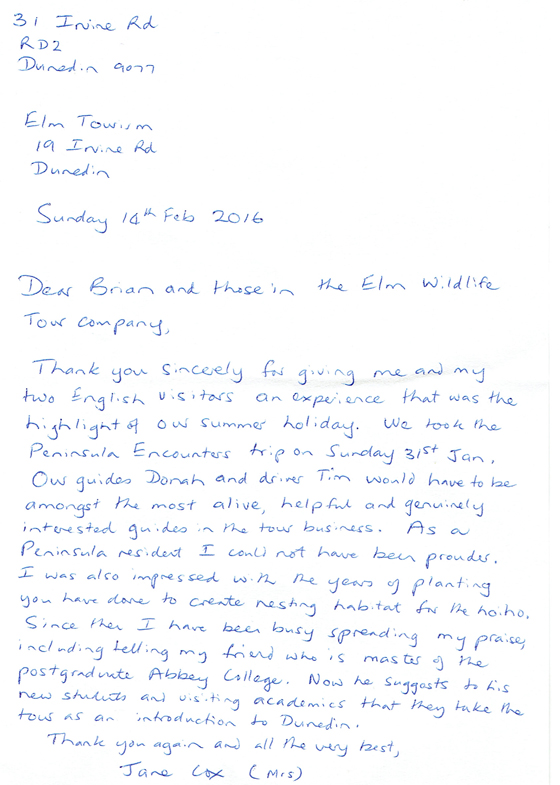 31 Irvine Rd
RD2
Dunedin 9077
Elm Tourism
19 Irvine Rd
Dunedin
Sunday 14th Feb 2016
Dear Brian and those in the Elm Wildlife
Tour company,
Thank you sincerely for giving me and my
two English visitors an experience that was the
highlight of our summer holiday. We took the
Peninsula Encounters trip on Sunday 31st Jan.
Our guides Donah and driver Tim would have to be
amongst the most alive, helpful and genuinely
interested guides in the tour business. As a
Peninsula resident I could not have been prouder.
I was also impressed with the years of planting
you have done to create nesting habitat for the hoiho.
Since then I have been busy spreading my praise,
including telling my friend who is master of the
postgraduate Abbey College. Now he suggests to his
new students and visiting academics that they take the
tour as an introduction to Dunedin.
Thank you again and all the very best,
Jane Cox (Mrs)